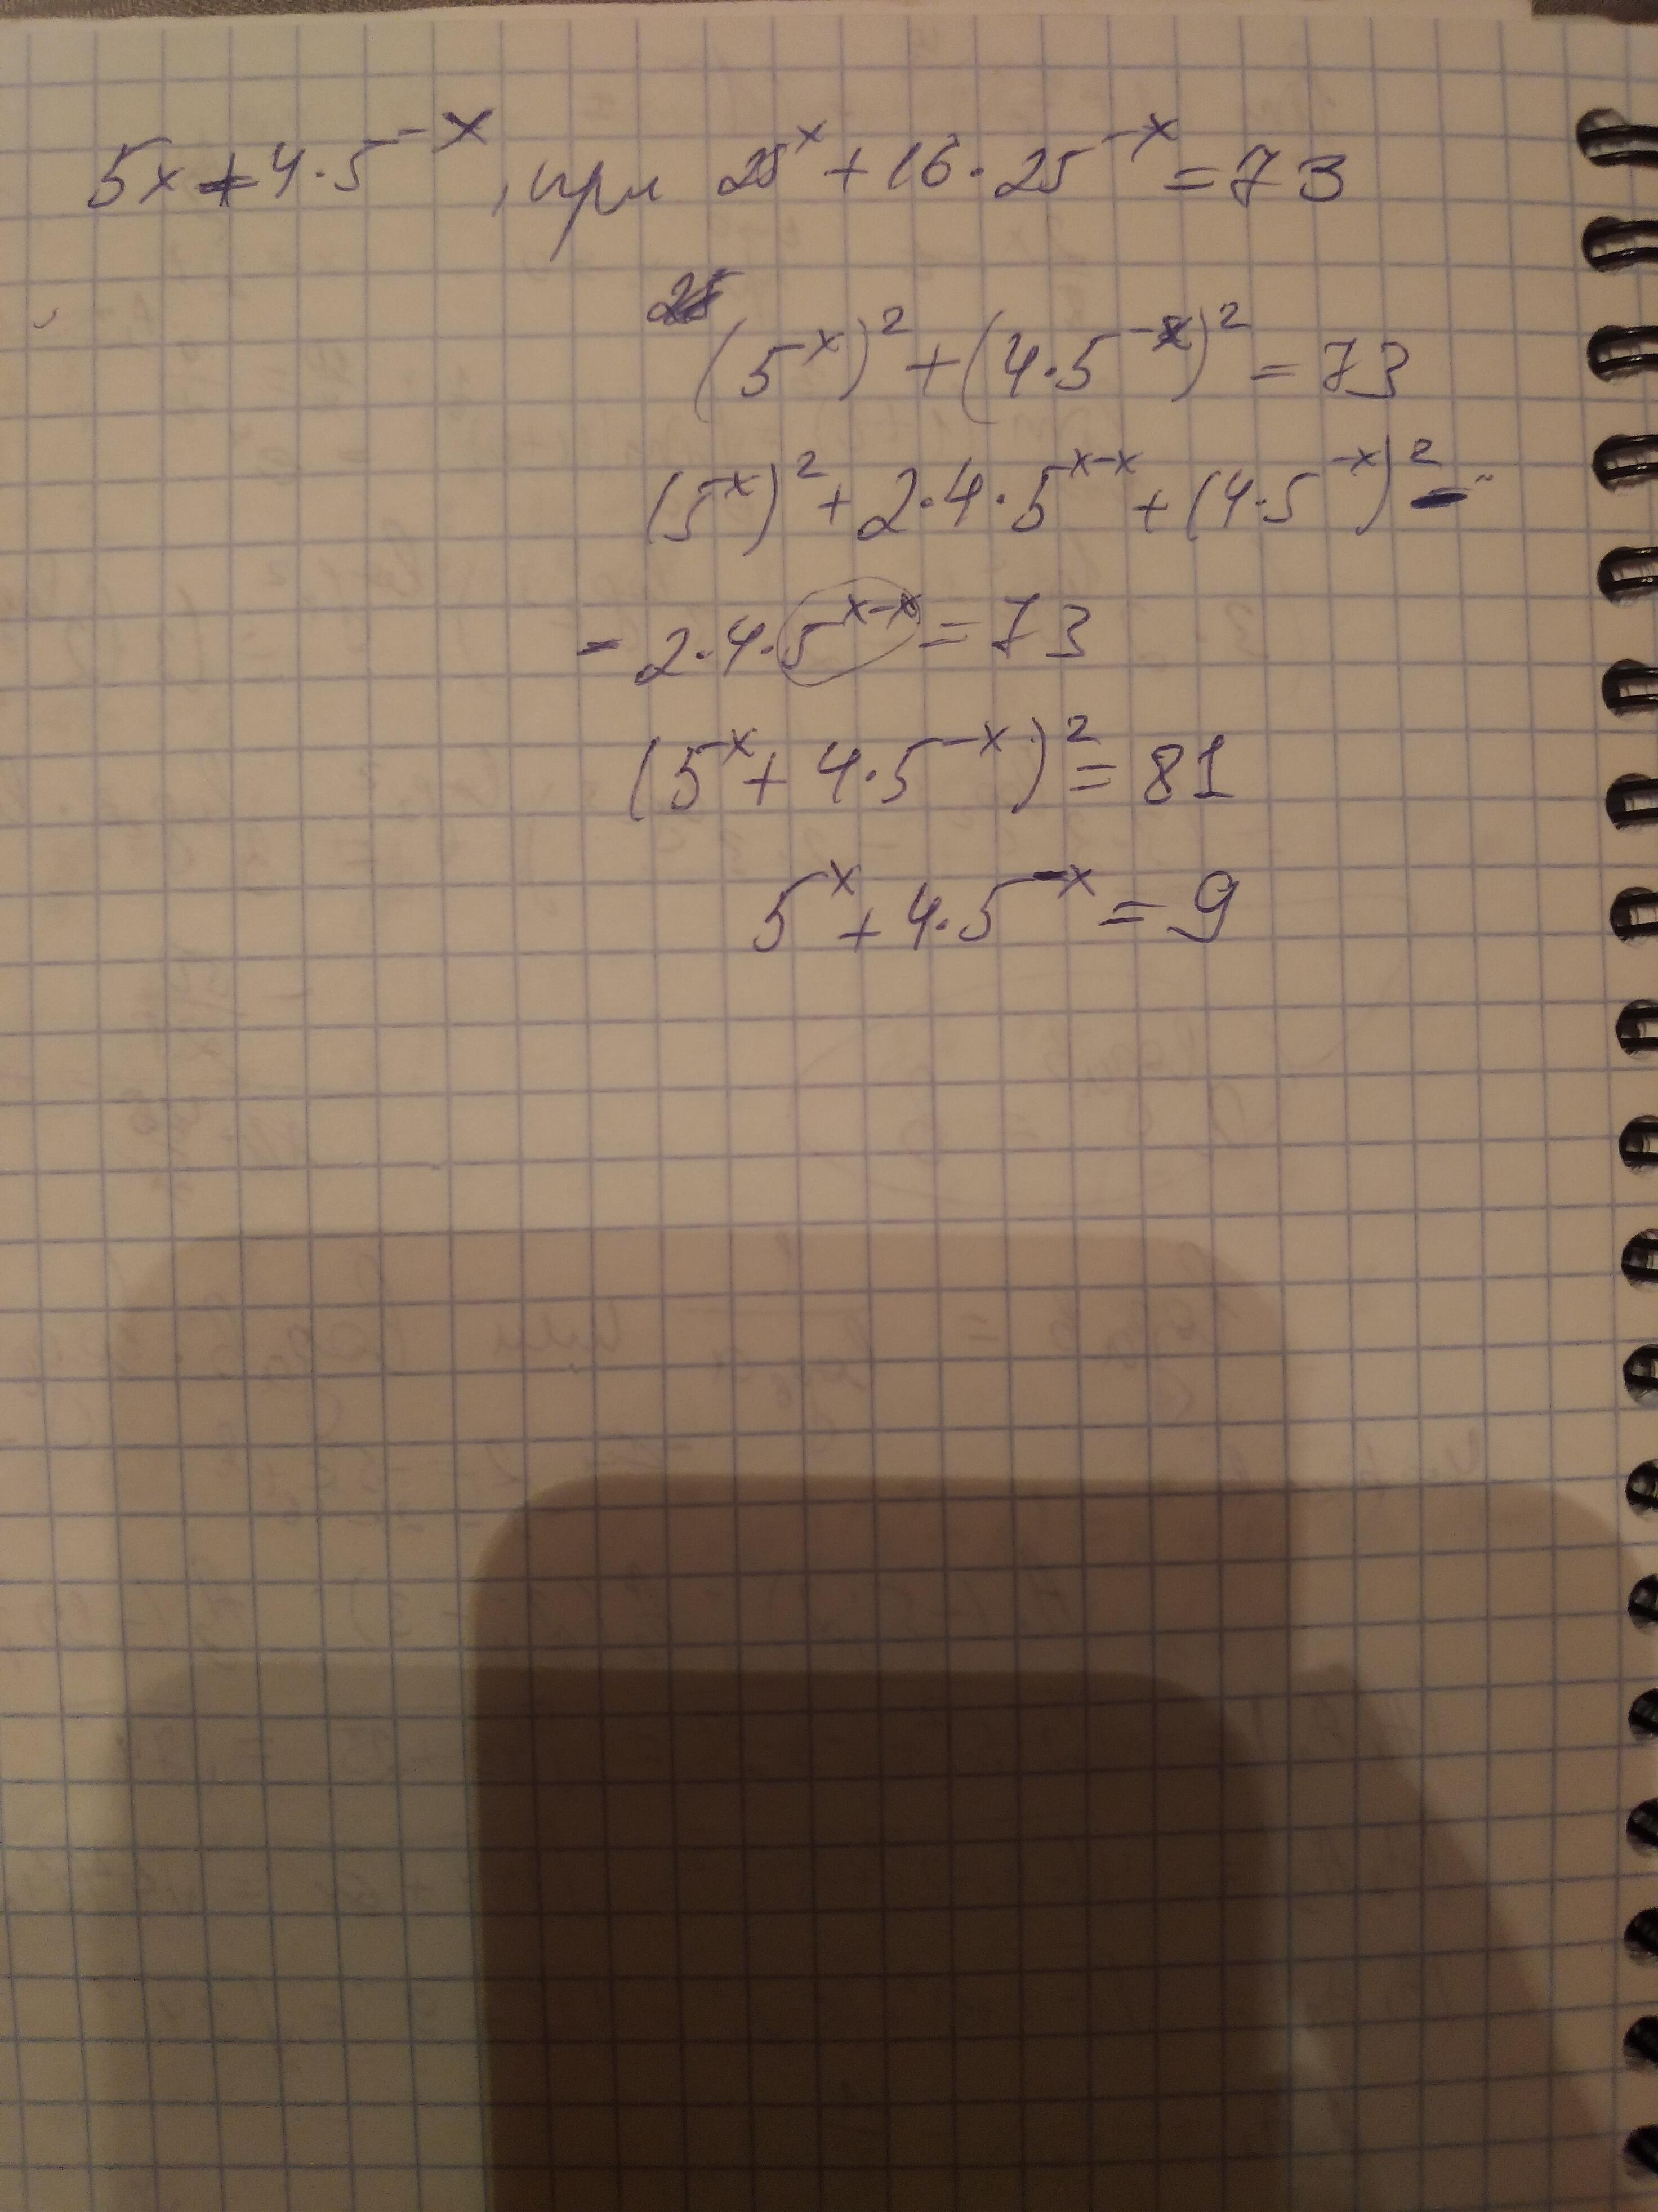 5x + 4·5^{-x}, при 25^x + 16·25^{-x} = 73
(5^x)^2 + (4·5^{-x})^2 = 73
(5^x)^2 + 2·4·5^{x-x} + (4·5^{-x})^2 -
- 2·4·5^{x-x} = 73
(5^x + 4·5^{-x})^2 = 81
5^x + 4·5^{-x} = 9